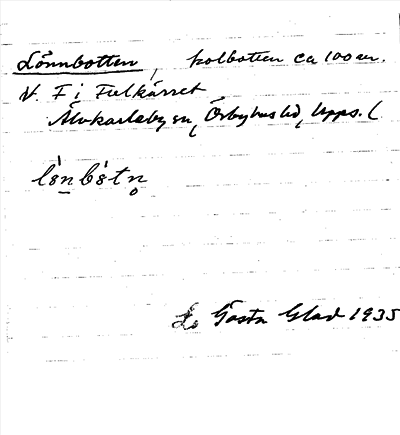 Lönnbotten, kolbotten ca 100 m.
V. F i Fielkärret
Älvkarleby sn, Örbyhus hd, Upps. l
lönbótn
Gösta Glad 1935